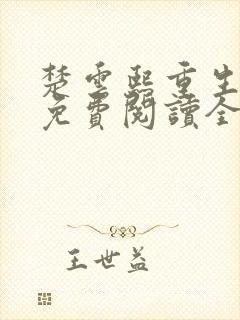 楚雲熙重生
免費閱讀全
王世益